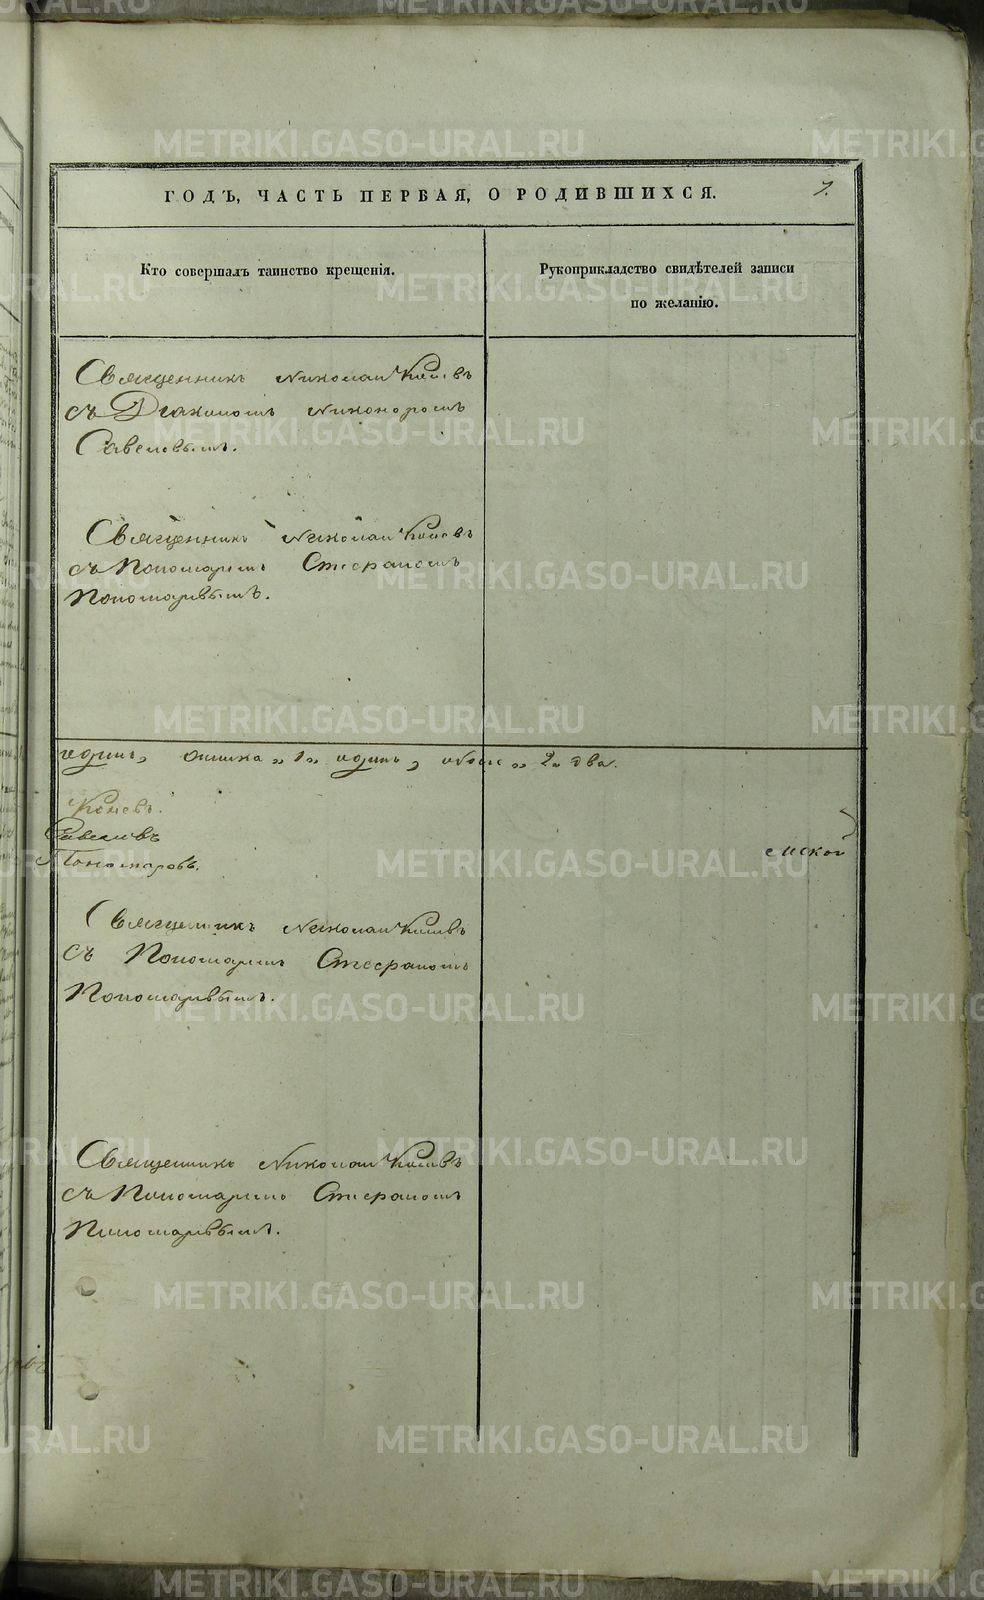 ГОДЪ, ЧАСТЬ ПЕРВАЯ, О РОДИВШИХСЯ.
7.
Кто совершалъ таинство крещенія.
Рукоприкладство свидѣтелей записи
по желанію.
Священникъ Николай Коневъ
съ Діакономъ Никоноромъ
Савеловымъ.
Священникъ Николай Коневъ
съ Пономаремъ Стефаномъ
Пономаревымъ.
единъ, 1 единъ, 2 два.
Коневъ.
Савеловъ
Пономаровъ.
Священникъ Николай Коневъ
съ Пономаремъ Стефаномъ
Пономаревымъ.
Священникъ Николай Коневъ
съ Пономаремъ Стефаномъ
Пономаревымъ.
METRIKI.GASO-URAL.RU